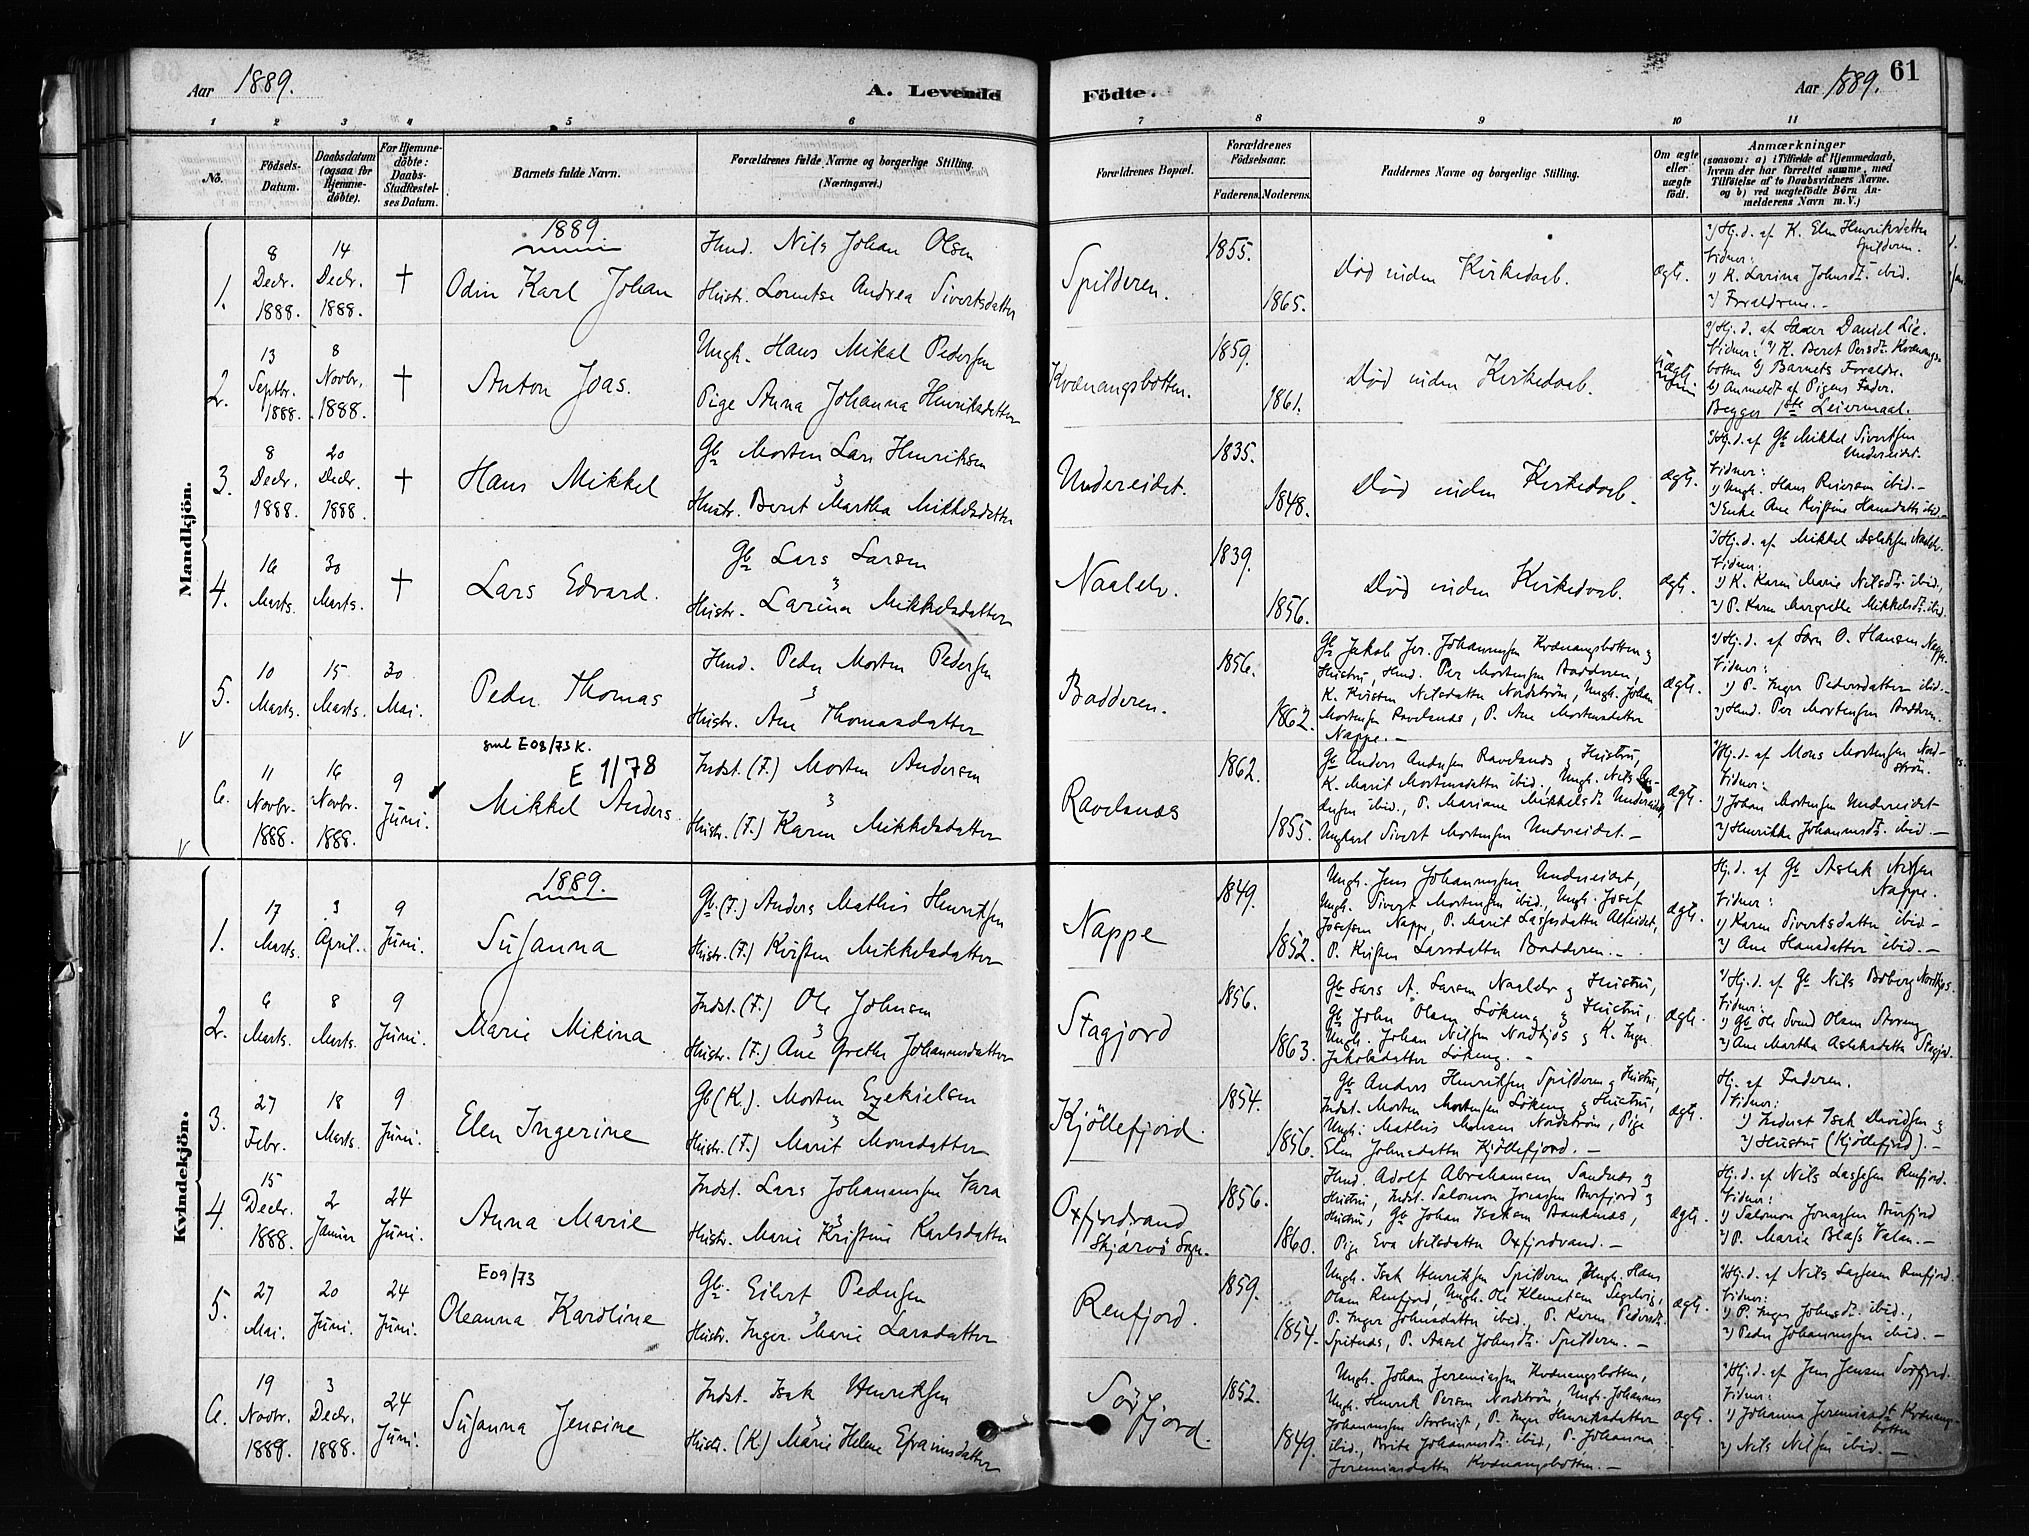 Aar 1889.
A. Levende
Födte.
Aar 1889.
61
1 2 3 4 5 6 7 8 9 10 11
No.
Födsels-Datum.
Daabsdatum (ogsaa for Hjemme-döbte).
For Hjemme-döbte: Daabs-Stadfæstel-ses Datum.
Barnets fulde Navn.
Forældrenes fulde Navne og borgerlige Stilling.
(Næringsvei.)
Forældrenes Bopæl.
Forældrenes Födselsaar.
Faderens. Moderens.
Faddernes Navne og borgerlige Stilling.
Om ægte eller uægte födt.
Anmærkninger
(saasom: a) i Tilfælde af Hjemmedaab,
hvem der har forrettet samme, med
Tilföielse af to Daabsvidners Navne.
og b) ved uægtefödte Börn An-
melderens Navn m. V.)
Mandkjön.
1889
1. 8 Decbr. 1888. 14 Decbr. 1888. † Odin Karl Johan
Hmd. Nils Johan Olsen
Hustr. Lorentse Andrea Sivertsdatter
Spilderen. 1855. 1865.
Död inden Kirkedaab.
ægt.
Hj.d. af K. Elen Henriksdatter Spilderen.
Vidner:
1) K. Larina Johnsdt. ibid.
2) Forældrene.
2. 13 Septbr. 1888. 8 Novbr. 1888. † Anton Joas.
Ungk. Hans Mikal Pedersen
Pige Anna Johanna Henriksdatter
Kvænangsbotten. 1859. 1861.
Död inden Kirkedaab.
uægt
Hj.d. af Daniel Lie.
Vidner: 1) K. Beret Persdt. Kvænangs-
botten 2) Barnets Forældre.
b) Anmeldt af Pigens Fader.
Begges 1ste Leiermaal.
3. 8 Decbr. 1888. 20 Decbr. 1888. † Hans Mikkel
Gb Morten Lars Henriksen
Hustr. Beret Martha Mikkelsdatter
Undereidet. 1835. 1848.
Död inden Kirkedaab.
ægt.
Hj.d. af Gb Mikkel Sivertsen Undereidet.
Vidner:
1) Ungk. Hans Reiersen ibid.
2) Enke Ane Kristine Hansdatter ibid.
4. 16 Marts. 30 Marts. † Lars Edvard.
Gb Lars Larsen
Hustr. Larina Mikkelsdatter
Naalelv. 1839. 1856.
Död inden Kirkedaab.
ægt.
Hj.d. af Mikkel Aslaksen Naalelv.
Vidner:
1) K. Karen Marie Nilsdt. ibid,
2) P. Karen Margrethe Mikkelsdt. ibid.
5. 10 Marts. 15 Marts. 30 Mai. Peder Thomas
Hmd. Peder Morten Pedersen
Hustr. Ane Thomasdatter
Badderen. 1856. 1862.
Gb Jakob Jer. Johannesen Kvænangsbotten og
Hustru, Hmd. Per Mortensen Badderen,
K. Kirsten Nilsdatter Nordström, Ungk. Johan
Mortensen Ravelsnæs, P. Ane Mortensdatter
Nappe.
ægt.
Hj.d. af Sörn O. Hansen Nappe.
Vidner:
1) P. Inger Pedersdatter ibid.
2) Hmd. Per Mortensen Badderen.
6. 11 Novbr. 1888. 16 Novbr. 1888. 9 Juni.
sml E08/73 K.
E 1/78
Mikkel Anders.
Indst. (F.) Morten Andersen
Hustr. (F.) Karen Mikkelsdatter
Ravelsnæs 1862. 1855.
Gb Anders Andersen Ravelsnæs og Hustru,
K. Marit Mortensdatter ibid., Ungk. Nils An-
dersen ibid., P. Mariane Mikkelsdt. Undereidet,
Ungkarl Sivert Mortensen Undereidet.
ægt.
Hj.d. af Mons Mortensen Nord-
ström.
Vidner:
1) Johan Mortensen Undereidet
2) Henrikke Johannesdt. ibid.
Kvindekjön.
1889.
1. 17 Marts. 3 April. 9 Juni. Susanna
Gb. (F.) Anders Mathis Henriksen
Hustr. (F.) Kristen Mikkelsdatter
Nappe 1849. 1852.
Ungk. Jens Johannessen Undereidet,
Ungk. Sivert Mortensen ibid., Ungk. Josef
Josefsen Nappe, P. Marit Lassesdatter Alteidet,
P. Kristen Larsdatter Badderen.
ægt.
Hj.d. af Gb Aslak Nilsen Nappe.
Vidner:
1) Karen Sivertsdatter ibid
2) Ane Hansdatter ibid.
2. 6 Marts. 8 Marts. 9 Juni. Marie Mikina
Indst. (F.) Ole Johnsen
Hustr. (F.) Ane Grethe Johannesdatter
Stagjord 1856. 1863.
Gb Lars A. Larsen Naalelv og Hustru,
Gb John Olsen Lökeng og Hustru,
Ungk. Johan Nilsen Nordkjos og K. Inger
Jakobsdatter Lökeng.
ægt.
Hj.d. af Gb Nils Boberg Nordkjos.
Vidner:
1) Gb Ole Svend Olsen Storeng
2) Ane Martha Aslaksdatter Stagjord.
3. 27 Febr. 18 Marts. 9 Juni. Elen Ingerine
Gb (K.). Morten Ezekielsen
Hustr. (F.) Marit Monsdatter
Kjöllefjord. 1854. 1856.
Gb Anders Henriksen Spilderen og Hustru,
Indst. Morten Mortensen Lökeng og Hustru,
Ungk. Mathis Monsen Nordström, Pige
Elen Johnsdatter Kjöllefjord.
ægt.
Hj. af Faderen.
Vidner:
1) Inderst Isak Davidsen og
2) Hustru (Kjöllefjord).
4. 15 Decbr. 1888. 2 Januar 24 Juni. Anna Marie
Indst. Lars Johannessen Vara
Hustr. Marie Kristine Karlsdatter
Oxfjordvand
Skjærvö Sogn. 1856. 1860.
Hmd. Adolf Abrahamsen Sandnæs og
Hustru, Indst. Salomon Jonassen Burfjord og
Hustru, Gb Johan Isaksen Bankenæs,
Pige Eva Nilsdatter Oxfjordvand.
ægt.
Hj.d. af Nils Lassesen Renfjord.
Vidner:
1) Salomon Jonassen Burfjord
2) P. Marie Blass Valan.
5. 27 Mai. 20 Juni. 24 Juni.
E09/73
Oleanna Karoline
Gb. Eilert Pedersen
Hustr. Inger Marie Larsdatter
Renfjord. 1859. 1854.
Ungk. Isak Henriksen Spilderen, Ungk. Hans
Olsen Renfjord, Ungk. Ole Klemetsen Segelvig,
P. Inger Johnsdatter ibid., P. Karen Pedersdt.
Spilnæs, P. Aasel Johnsdt. Spilderen.
ægt.
Hj.d. af Nils Lassesen Renfjord.
Vidner:
1) P. Inger Johnsdt. ibid.,
2) Peder Johannessen ibid.
6. 19 Novbr. 1889. 3 Decbr. 1888. 24 Juni. Susanna Jensine
Indst. Isak Henriksen
Hustr. (K.) Marie Helene Efraimsdatter
Sörfjord. 1852. 1849.
Ungk. Johan Jeremiassen Kvænangsbotten,
Ungk. Henrik Persen Nordström, Ungk. Johannes
Johannessen Storbugt, P. Inger Henriksdatter
ibid., Brite Johannesdt. ibid, P. Johanna
Jeremiasdatter Kvænangsbotten.
ægt.
Hj.d. af Jens Jensen Sörfjord.
Vidner:
1) Johanna Jeremiasdt Kvænangs-
botten
2) Nils Nilsen ibid.